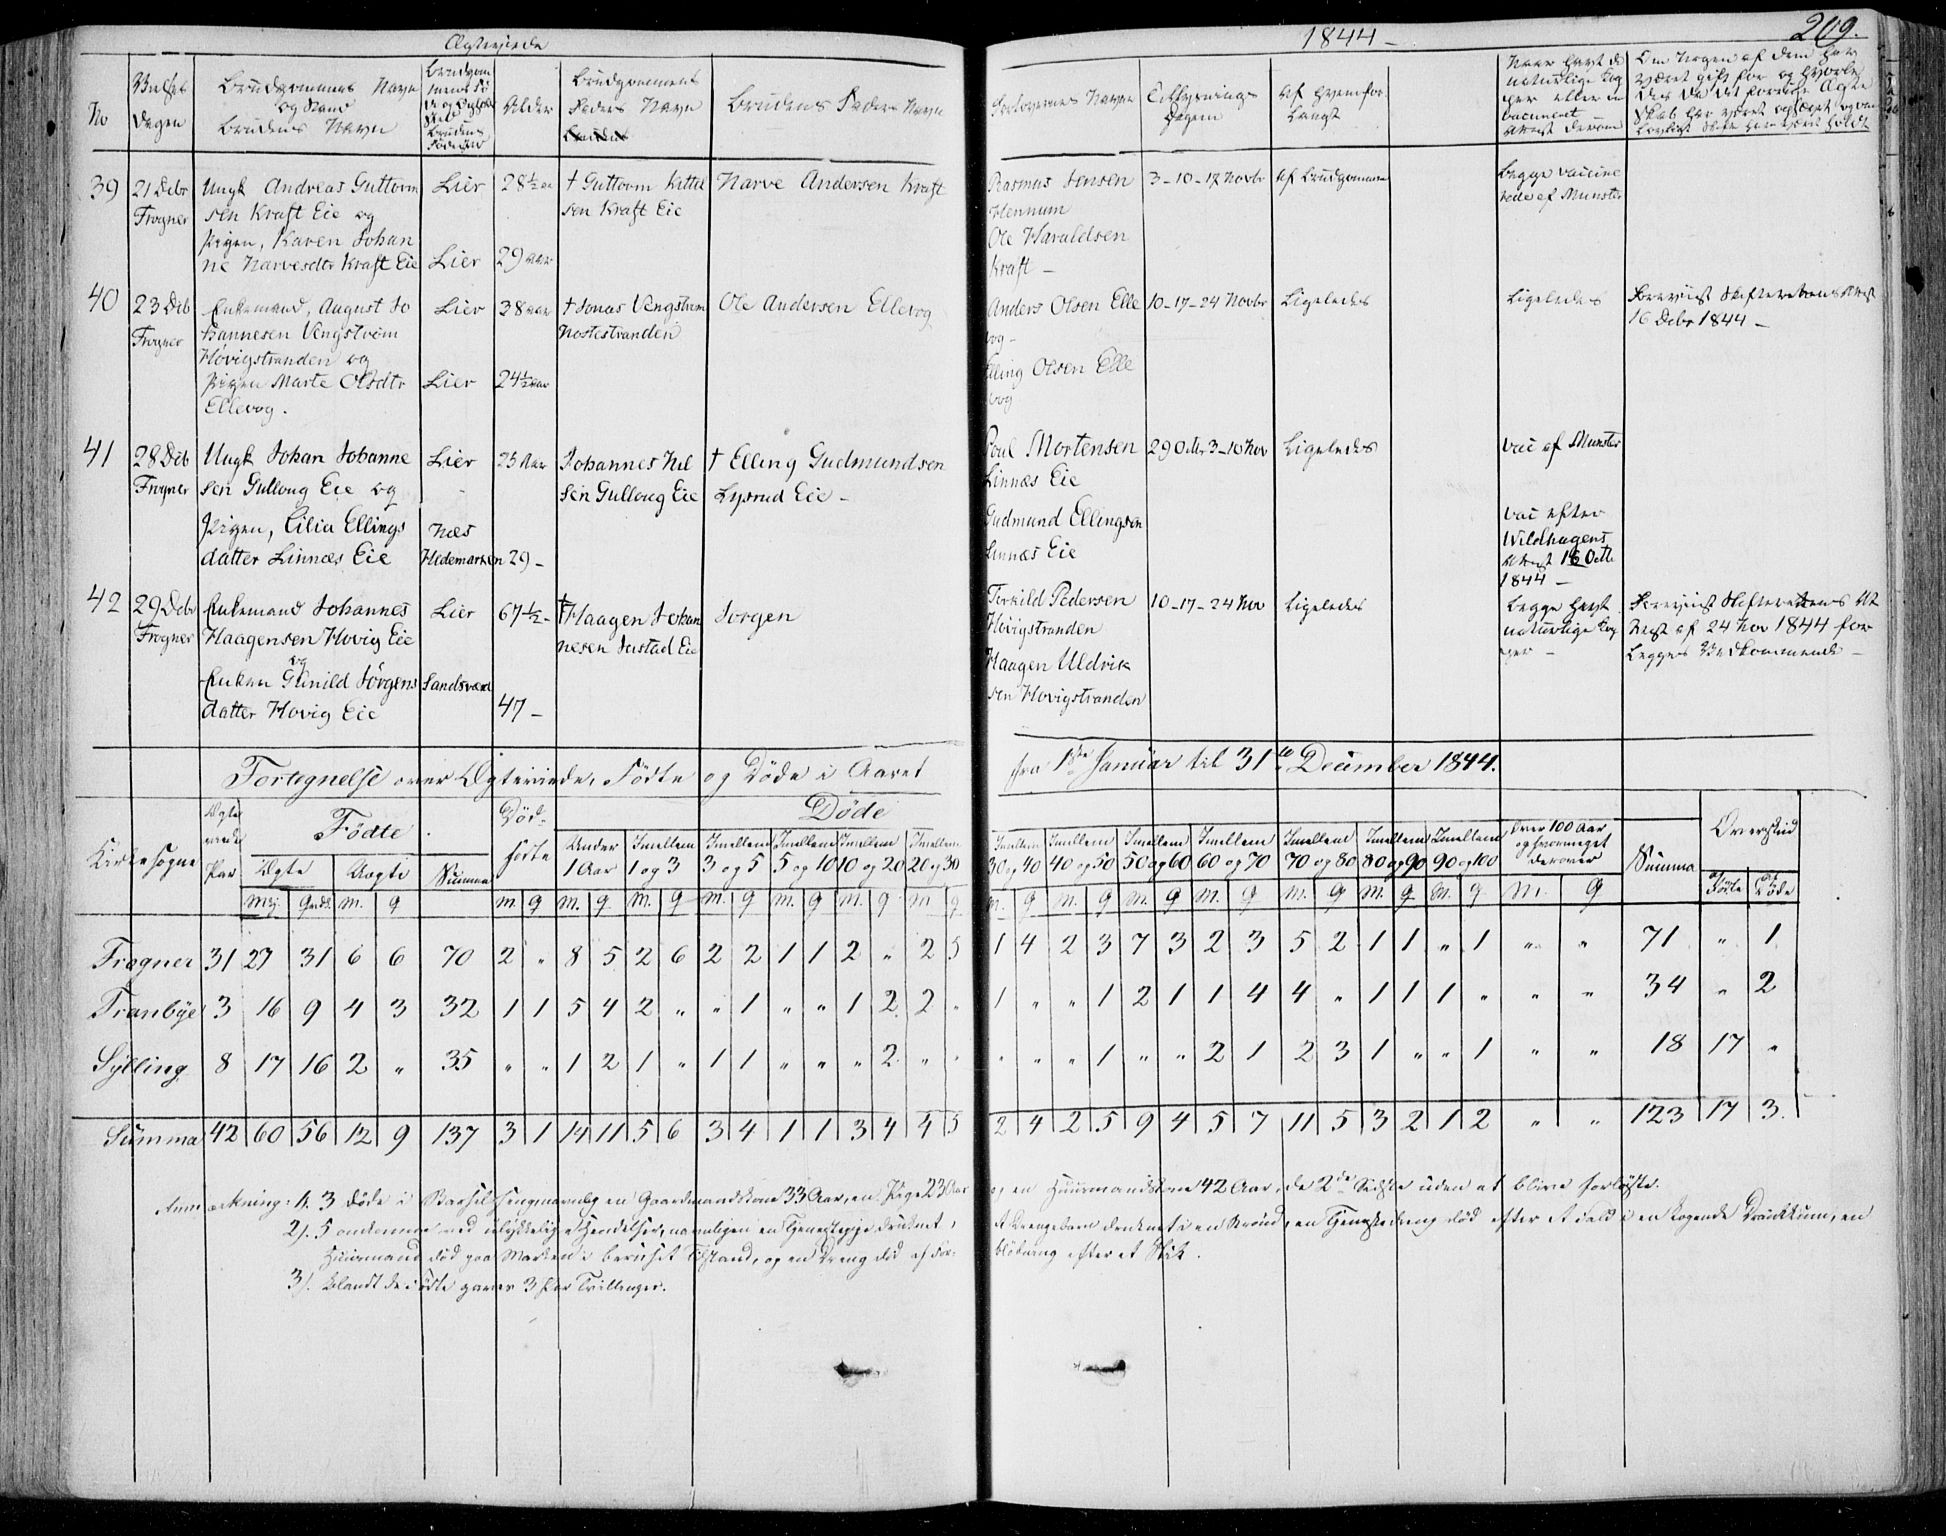 Ægteviede
1844 —
209.
No
Vielses
Dagen
Brudgommens Navn
og Stand
Brudens Navn
Alder
Brudgommens
Faders Navn
Brudens Faders Navn
Forlovernes Navne
Tillysnings
Dagen
af hvem for
langt
39
21 Debr
Frogner
Ungk Andreas Guttorm
sen Kraft Eie og
Pigen, Karen Johan
ne Narvesdtr Kraft Eie
Lier
Lier
28 ½ aar
29 aar
† Guttorm Kittel
sen Kraft Eie
Narve Andersen Kraft
Rasmus Jensen
Hennum
Ole Haraldsen
Kraft —
3-10-17 Novbr
af Brudgommen
Begge vaccine
rede af Munster
40
23 Deb
Frogner
Enkemand, August Jo
hannesen Vengstrøm
Høvigstranden og
Pigen Marte Olsdtr
Ellevog.
Lier
Lier
38 aar
24 ½ aar
† Jonas Vengstrøm
Nostestranden
Ole Andersen Ellevog
Anders Olsen Elle
vog —
Elling Olsen Elle
vog
10-17-24 Novbr
Ligeledes
Ligeledes
Foreviist Skifterettens Attest
16 Debr 1844 —
41
28 Deb
Frogner
Ungk Johan Johanne
sen Gulloug Eie og
Pigen, Cilia Ellings
datter Linnæs Eie
Lier
Næs
Hedemarken
25 Aar
29 —
Johannes Nil
sen Gulloug Eie
† Elling Gudmundsen
Lysrud Eie —
Poul Mortensen
Linnæs Eie
Gudmund Ellingsen
Linnæs Eie
29 Octbr 3-10 Nov
Ligeledes
vac af Munster
vac efter
Wildhagens
Attest 16 Octb
1844 —
42
29 Debr
Frogner
Enkemand Johannes
Haagensen Hovig Eie
og
Enken Gunild Jörgens
datter Hovig Eie
Lier
Sandsværd
67 ½ —
47 —
† Haagen Johan
nesen Justad Eie
Jorgen
Torkild Pedersen
Høvigstranden
Haagen Uldrik
sen Hovigstranden
10-17-24 Nov
Ligeledes
Begge havt
naturlige Kop
per —
Foreviist Skifterettens At
test af 24 Nov 1844 for
begges Vedkommende —
Fortegnelse over Ægteviede, Födte og Döde i Aaret
fra 1ste Januar til 31te December 1844.
Kirkesogne
Ægte
viede
Par
Födte
Ægte
Uægte
Summa
Död-
födte
Döde
Under
1 Aar
Imellem
1 og 3
Imellem
3 og 5
Imellem
5 og 10
Imellem
10 og 20
Imellem
20 og 30
Imellem
30 og 40
Imellem
40 og 50
Imellem
50 og 60
Imellem
60 og 70
Imellem
70 og 80
Imellem
80 og 90
Imellem
90 og 100
Over 100 Aar
og hvormeget
derover
Summa
Overskud
Födte
Döde
Frogner 31 27 31 6 6 70 2 " 8 5 2 6 2 2 1 1 2 " 2 5 1 4 2 3 7 3 2 3 5 2 1 1 " 1 " " 71 " 1
Tranbye 3 16 9 4 3 32 1 1 5 4 2 " " 1 " " 1 2 2 " 1 " " 1 2 1 1 4 4 " 1 1 1 " " " 34 " 2
Sylling 8 17 16 2 " 35 " " 1 2 1 " 1 1 " " " 2 " " " " " 1 " " 2 1 2 3 1 " " 1 " " 18 17 "
Summa 42 60 56 12 9 137 3 1 14 11 5 6 3 4 1 1 3 4 4 5 2 4 2 5 9 4 5 7 11 5 3 2 1 2 " " 123 17 3.
Anmærkning: 1. 3 døde i Barselseng navnlig en Gaardmandskone 33 Aar, en Pige 23 Aar og en Huusmandskone 42 Aar, de 2de Sidste uden at blive forløste.
2). 5 omkomne ved ulykkelige Hendelser, navnligen en Tjenestepige druknet, et Drengebarn druknet i en Brønd, en Tjenestedreng død efter et Fald i en kogende , en
Huusmand død paa Marken i beruset Tilstand, og en Dreng død af For-
blødning efter et Stik.
3). Blandt de Födte 3 Par Tvillinger.